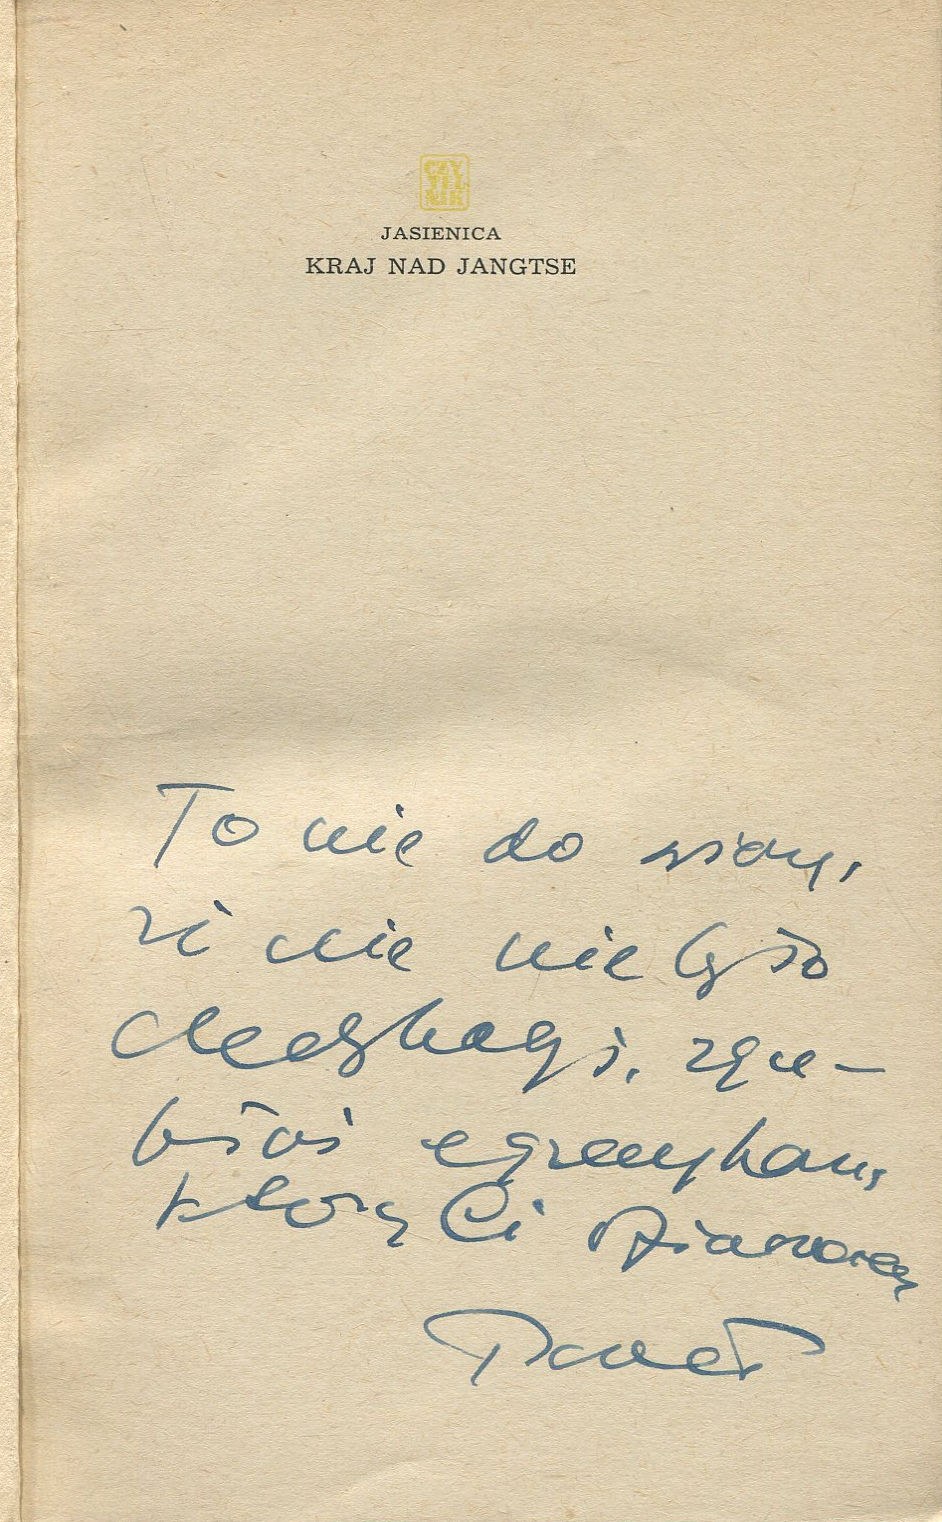 CZY
TEL
NIK
JASIENICA
KRAJ NAD JANGTSE
To nie do wiary,
że nie nie było
dedykacji, zgu-
biłaś egzemplarz,
który Ci
Paweł